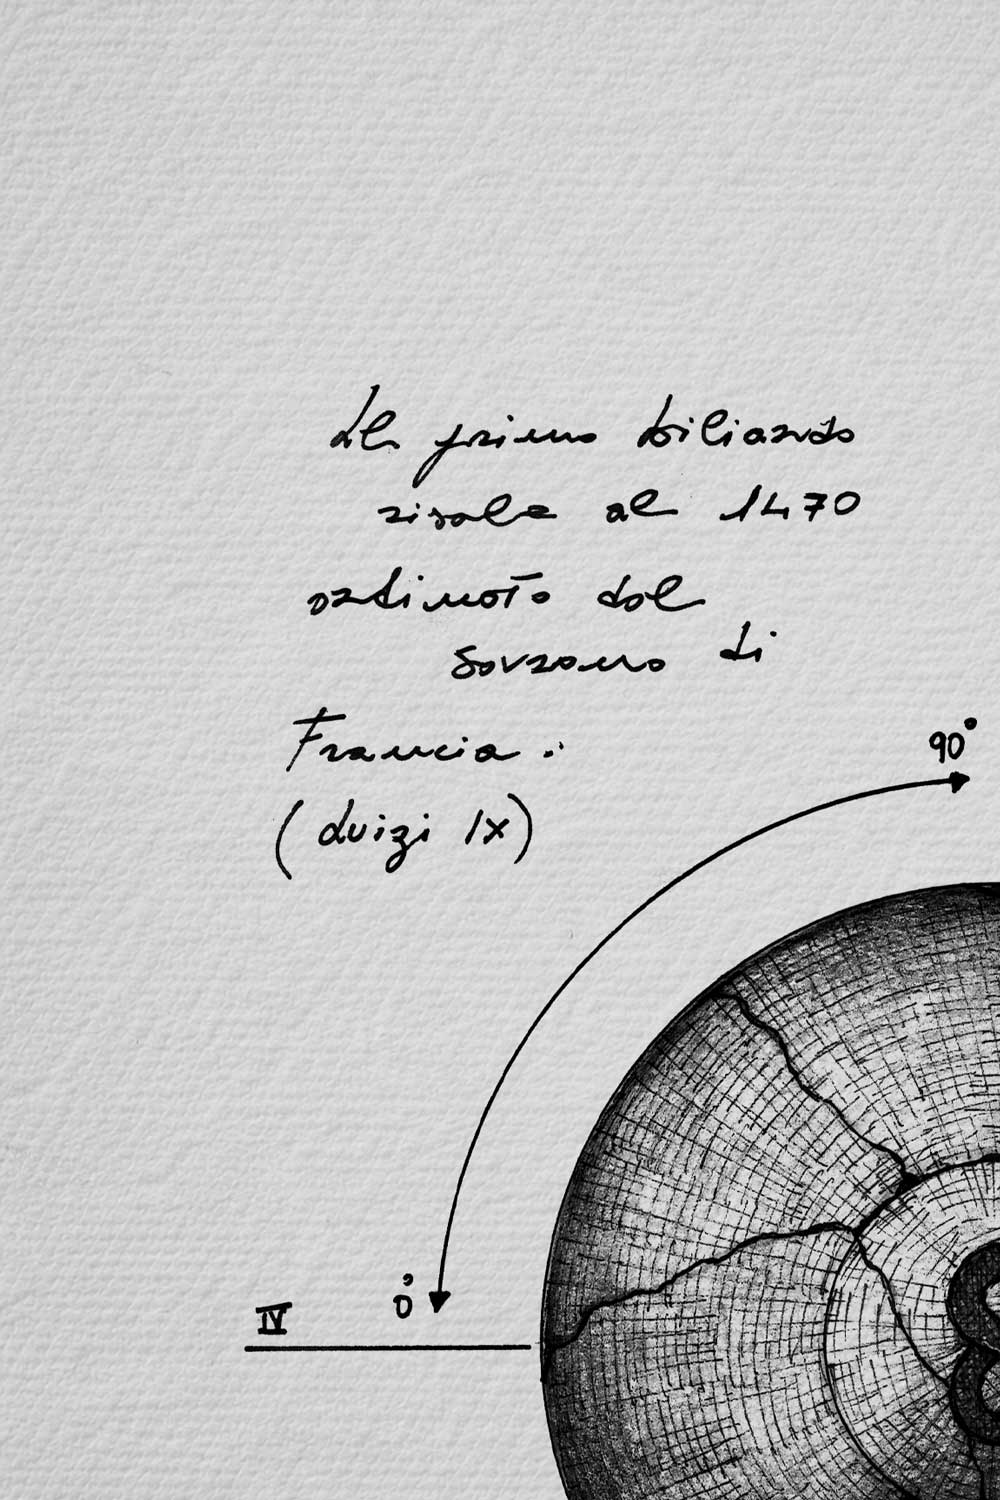 Il primo biliardo
risale al 1470
ordinato dal
sovrano di
Francia.
(Luigi IX)
90°
0°
IV
8